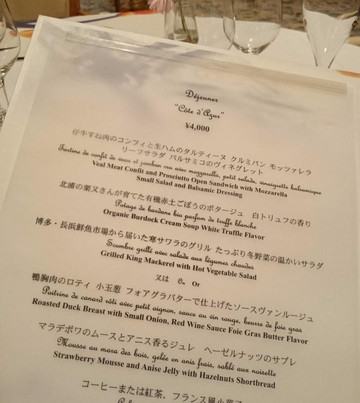 Déjeuner
"Côte d'Azur"
¥4,000
仔牛すね肉のコンフィと生ハムのタルティーヌ クルミパン モッツァレラ
リーフサラダ バルサミコのヴィネグレット
Tartine de confit de veau et jambon cru avec mozzarella, petit salade, vinaigrette balsamique
Veal Meat Confit and Prosciutto Open Sandwich with Mozzarella
Small Salad and Balsamic Dressing
北浦の楽又さんが育てた有機赤土ごぼうのポタージュ 白トリュフの香り
Potage de bardane bio parfum de truffe blanche
Organic Burdock Cream Soup White Truffle Flavor
博多・長浜鮮魚市場から届いた寒サワラのグリル たっぷり冬野菜の温かいサラダ
Scombre grillé avec salade aux légumes chaudes
Grilled King Mackerel with Hot Vegetable Salad
又は Ou Or
鴨胸肉のロティ 小玉葱 フォアグラバターで仕上げたソースヴァンルージュ
Poitrine de canard rôti avec petit oignon, sauce au vin rouge, beurre de foie gras
Roasted Duck Breast with Small Onion, Red Wine Sauce Foie Gras Butter Flavor
マラデボワのムースとアニス香るジュレ ヘーゼルナッツのサブレ
Mousse au mara des bois, gelée en anis frais, sablé aux noisette
Strawberry Mousse and Anise Jelly with Hazelnuts Shortbread
コーヒーまたは紅茶、フランス風小菓子